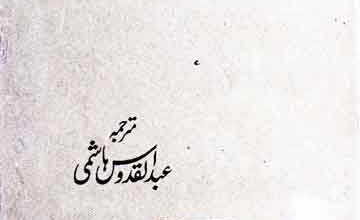 مترجمہ
عبدالقدوس ہاشمی